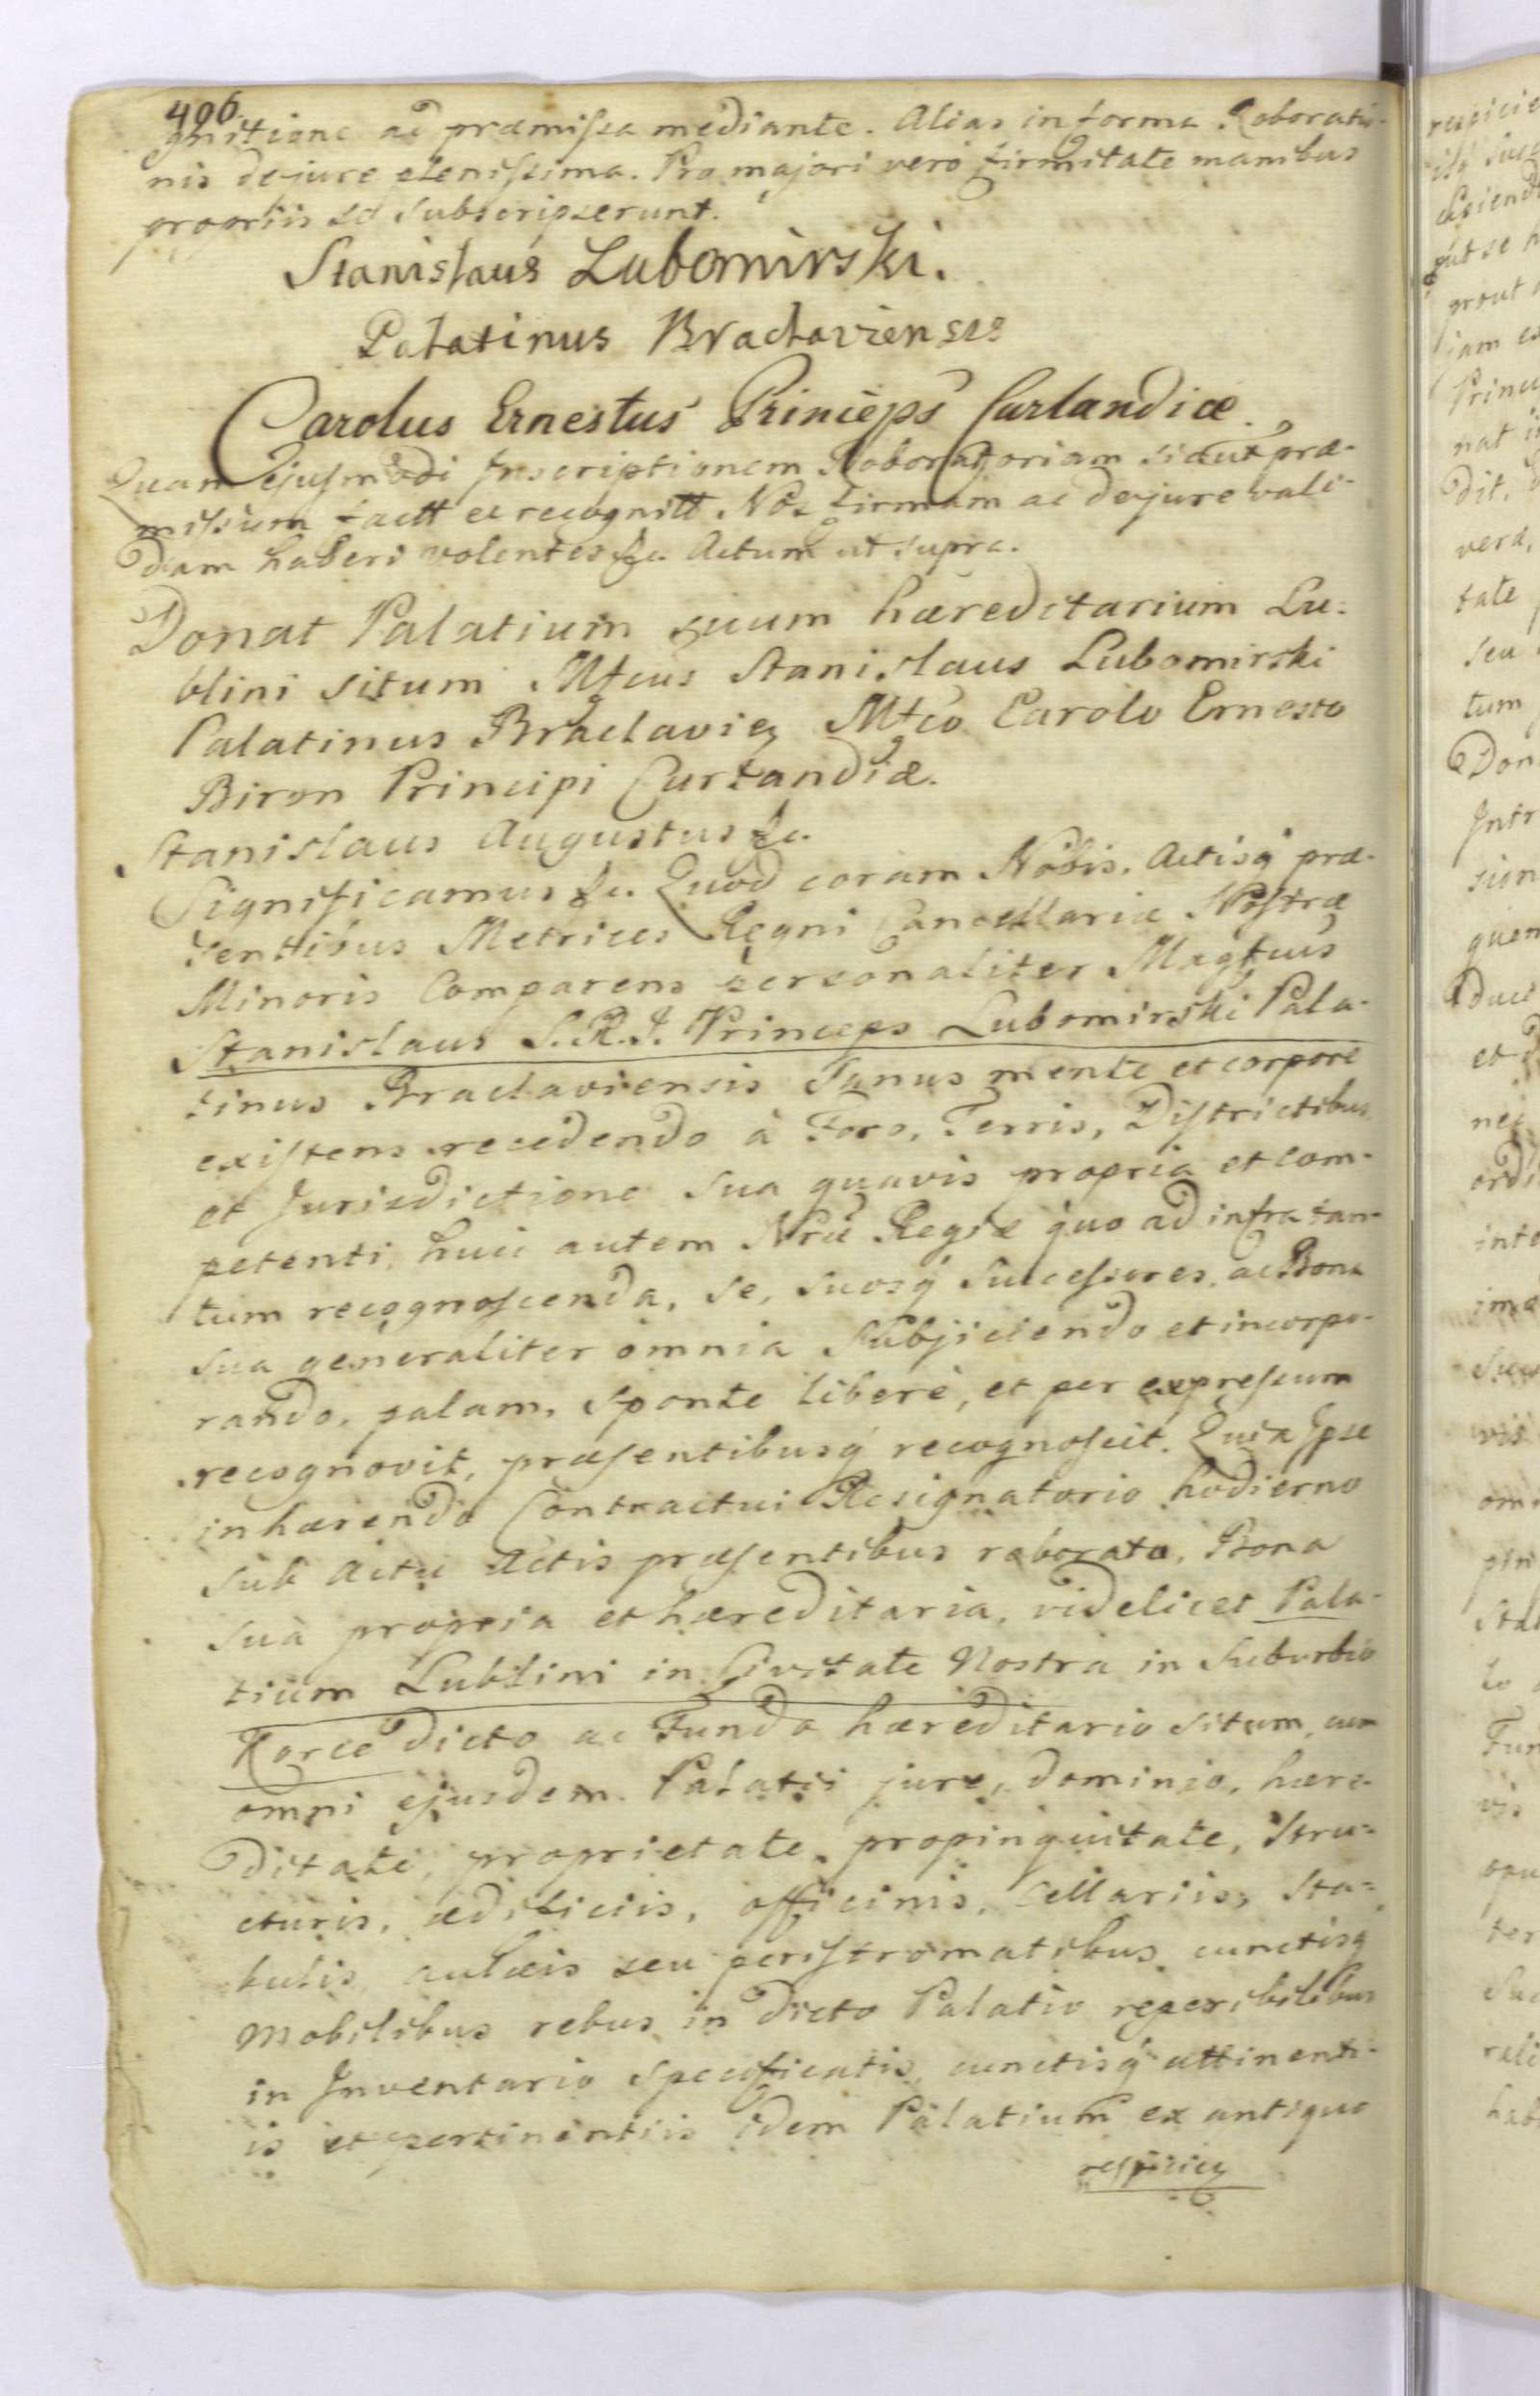 406
gnitione ad præmissa mediante. Alias in forma Roboratio-
nis de jure plenissima. Pro majori verò firmitate manibus
propriis se subscripserunt.
Stanislaus Lubomirski.
Palatinus Braclaviensis
Carolus Ernestus Princeps Curlandiæ.
Quam ejusmodi Inscriptionem Roboratoriam sicut præ-
missum factt et recognitt Nos firmam ac de jure vali-
dam haberi volentes &c. Actum ut supra.
Donat Palatium suum hæreditarium Lu-
blini situm Mfcus Stanislaus Lubomirski
Palatinus Braclavien Mfco Carolo Ernesto
Biron Principi Curlandiæ.
Stanislaus Augustus &c.
Significamus &c. Quod coram Nobis, Actisq præ-
sentibus Metrices Regni Cancellariæ Nostræ
Minoris Comparens personaliter Magfcus
Stanislaus S.R.I. Princeps Lubomirski Pala-
tinus Braclaviensis Sanus mente et corpore
existens recedendo à Foro, Terris, Districtibus
et Jurisdictione sua quavis propria et com-
petenti, huic autem Nræ Regiæ quo ad infra tan-
tum recognoscenda, se, suosq successores, ac Bona
sua generaliter omnia Subjiciendo et incorpo-
rando, palam, sponte liberè, et per expressum
recognovit, præsentibusq recognoscit. Quia Ipse
inhærendo Contractui Resignatorio hodierno
sub Actu Actis præsentibus roborato, Bona
sua propria et hæreditaria, videlicet Pala-
tium Lublini in Civitate Nostra in Suburbio
Korce dicto ac Fundo hæreditario situm, cum
omni ejusdem Palatii jure, dominio, hære-
ditate, proprietate, propinquitate, Stru-
cturis, ædificiis, officinis, Cellariis, Sta-
bulis, aulæis seu peristromatibus cunctisq
Mobilibus rebus in dicto Palatio reperibilibus
in Inventario specificatis, cunctisq attinenti-
is et pertinentiis idem Palatium ex antiquo
respicien